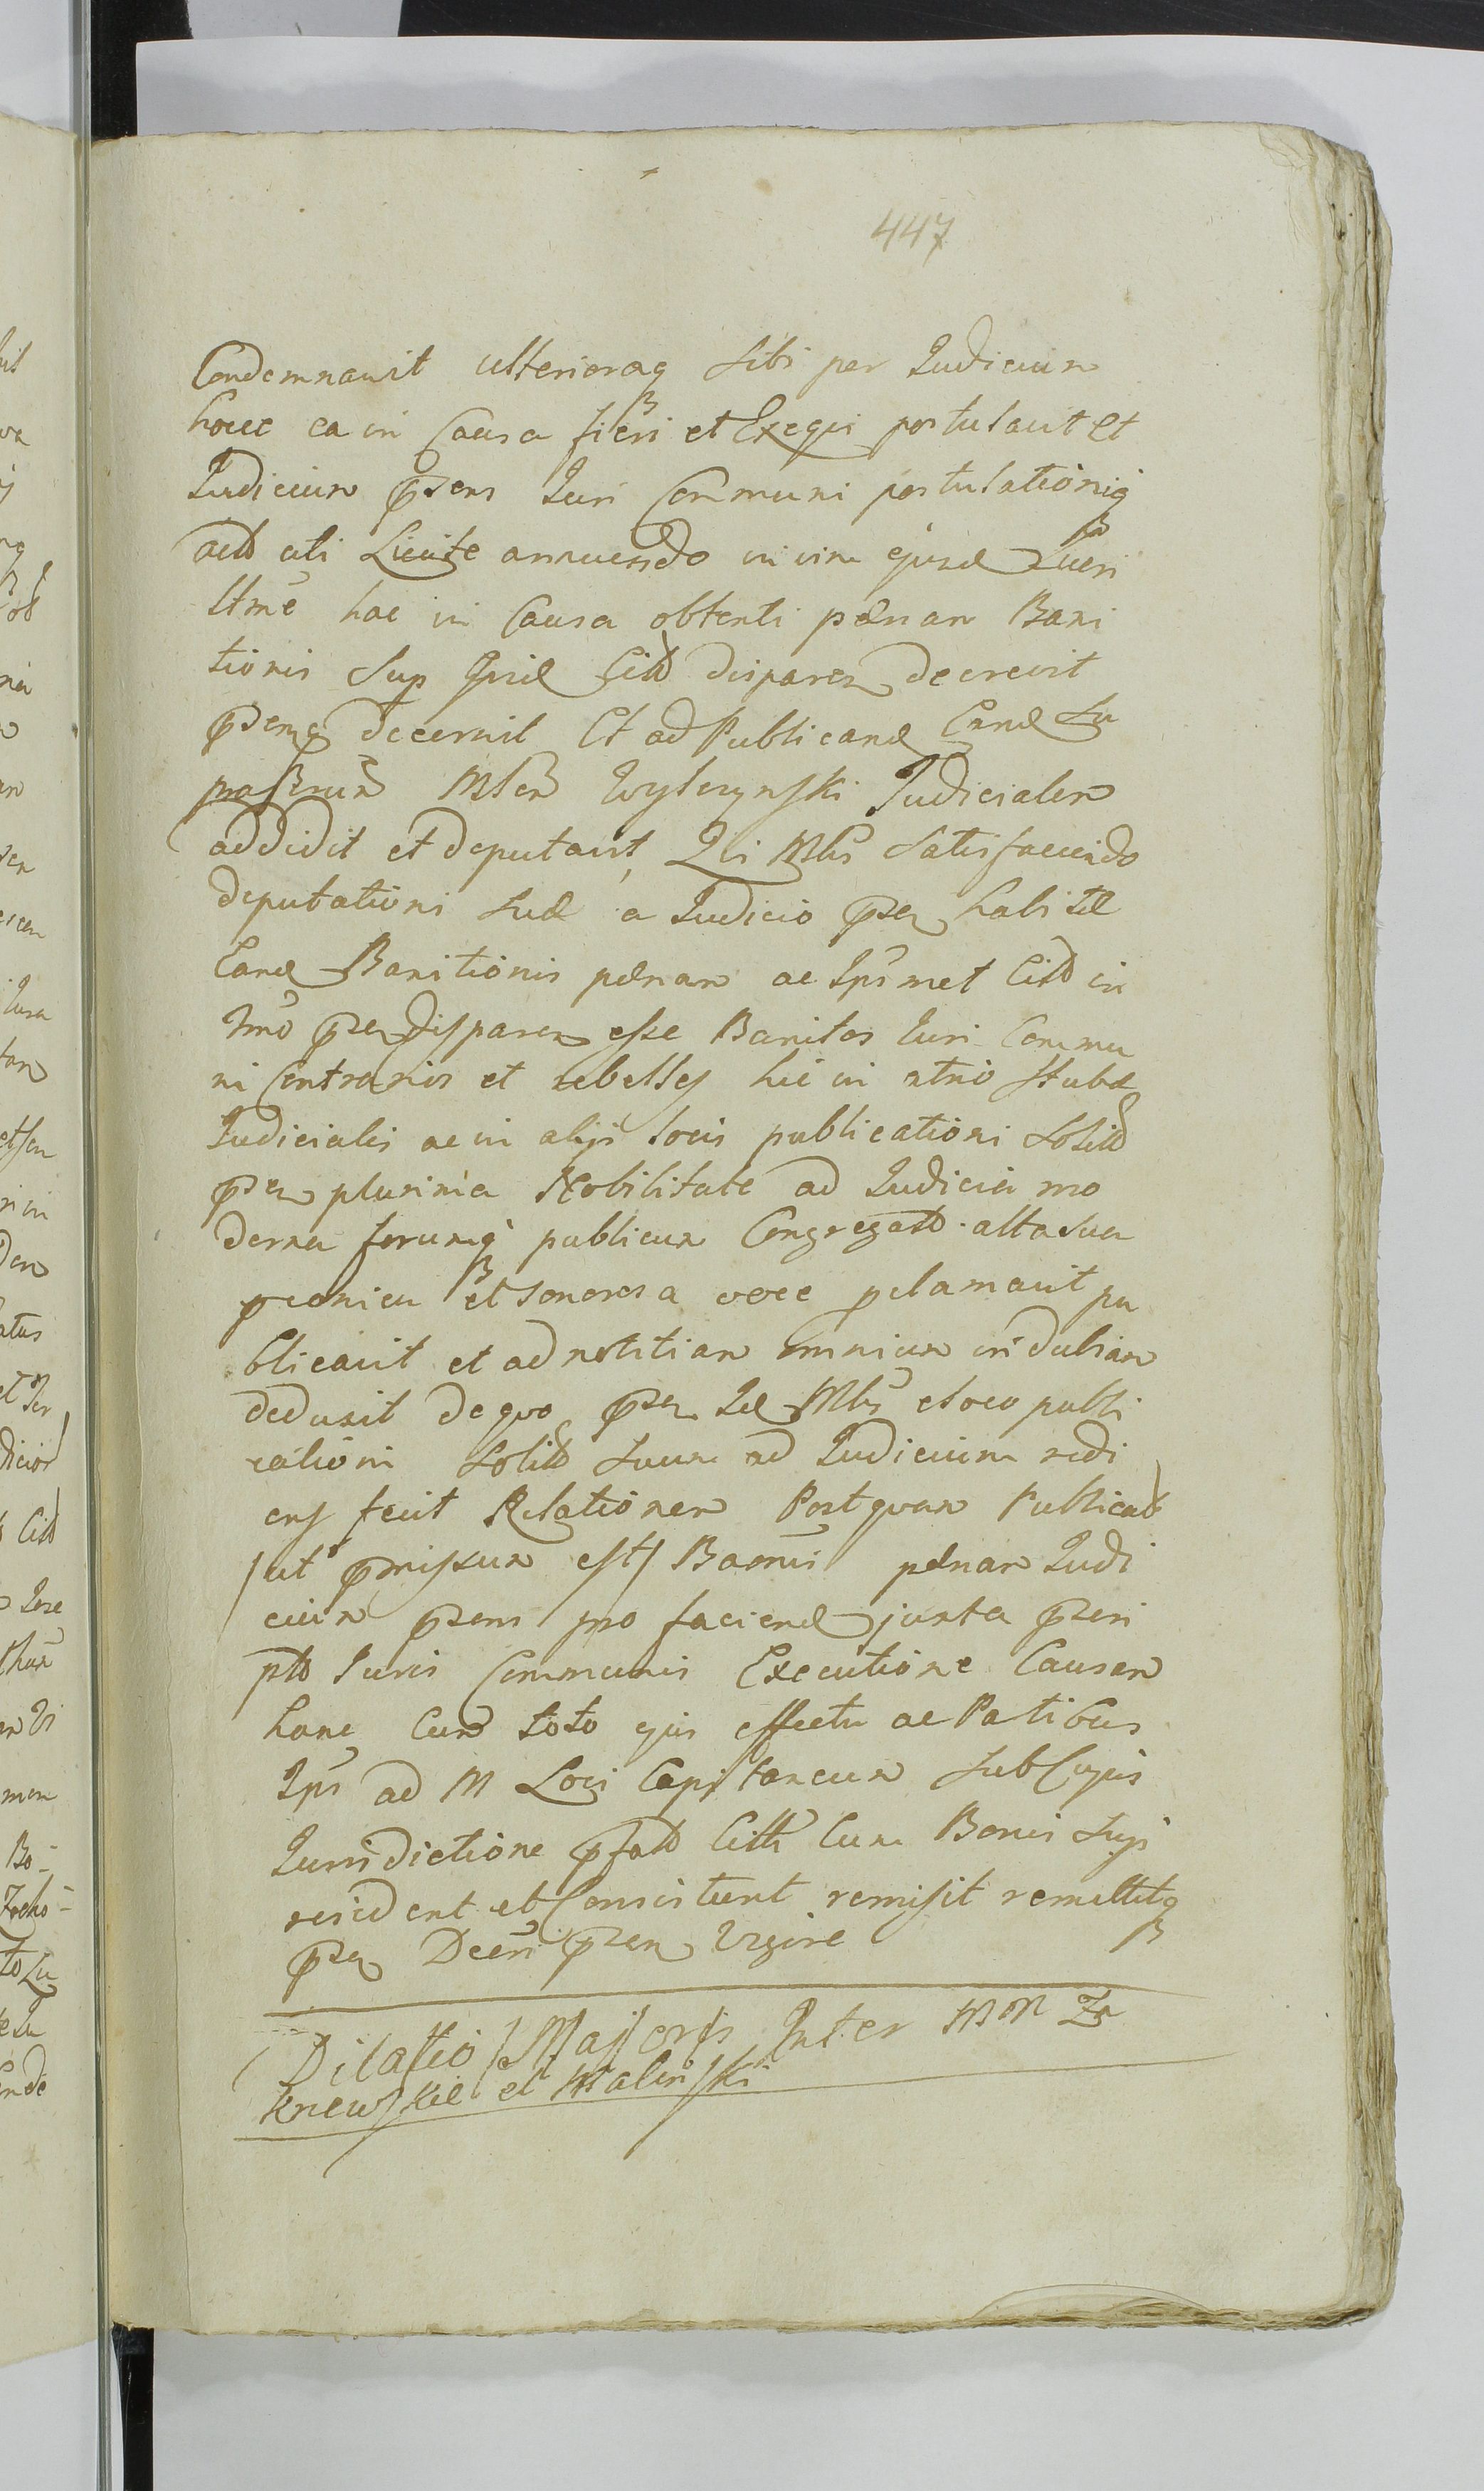 447
Condemnavit ulterioraq sibi per Judicium
hocce ea in Causa fieri et Exequi postulavit Et
Judicium pñs Juri Communi postulationiq
actt uti Licitæ annuendo in vim ejusd Lucri
ltmē hac in Causa obtenti pænam Bani
tionis sup ipsil Citt disparen decrevit
pñsenq decernit Et ad Publicand Eand Su
Mlem Wylczynski Judicialem
addidit et deputavit, Qui Mlis satisfaciendo
deputationi suæ a Judicio psen habitæ
Eand Banitionis pænam ac Ipsmet Citt in
Tmō psen disparen esse Banitos Juri Commu
ni Contrarios et rebelles hic in atrio stubæ
Judicialis ac in alijs locis publicationi solitt
psen plurima Nobilitate ad Judicia mo
derna forumq publicum Congregatt alta sua
et sonorosa voce pclamavit pu
blicavit et ad notitiam omnium indubiam
deduxit de quo psen Id Mlis et loco publi
cationi solitt suam ad Judicium redi
ens fecit Relationem Postquam Publicatt
/ut pmissum est/ Bannis pænam Judi
cium psens pro faciend juxta pscri
ptt Juris Communis Executione Causam
hanc Cum toto ejus effectu ac Patibus
Ips ad M Loci Capitaneum sub Cujus
Jurisdictione pfatt Citti Cum Bonis suis
resident et Consistunt remisit remittitq
psen Decri psen Vigore
Dilatio Majoris Inter MM Za
krewskie et Malinski